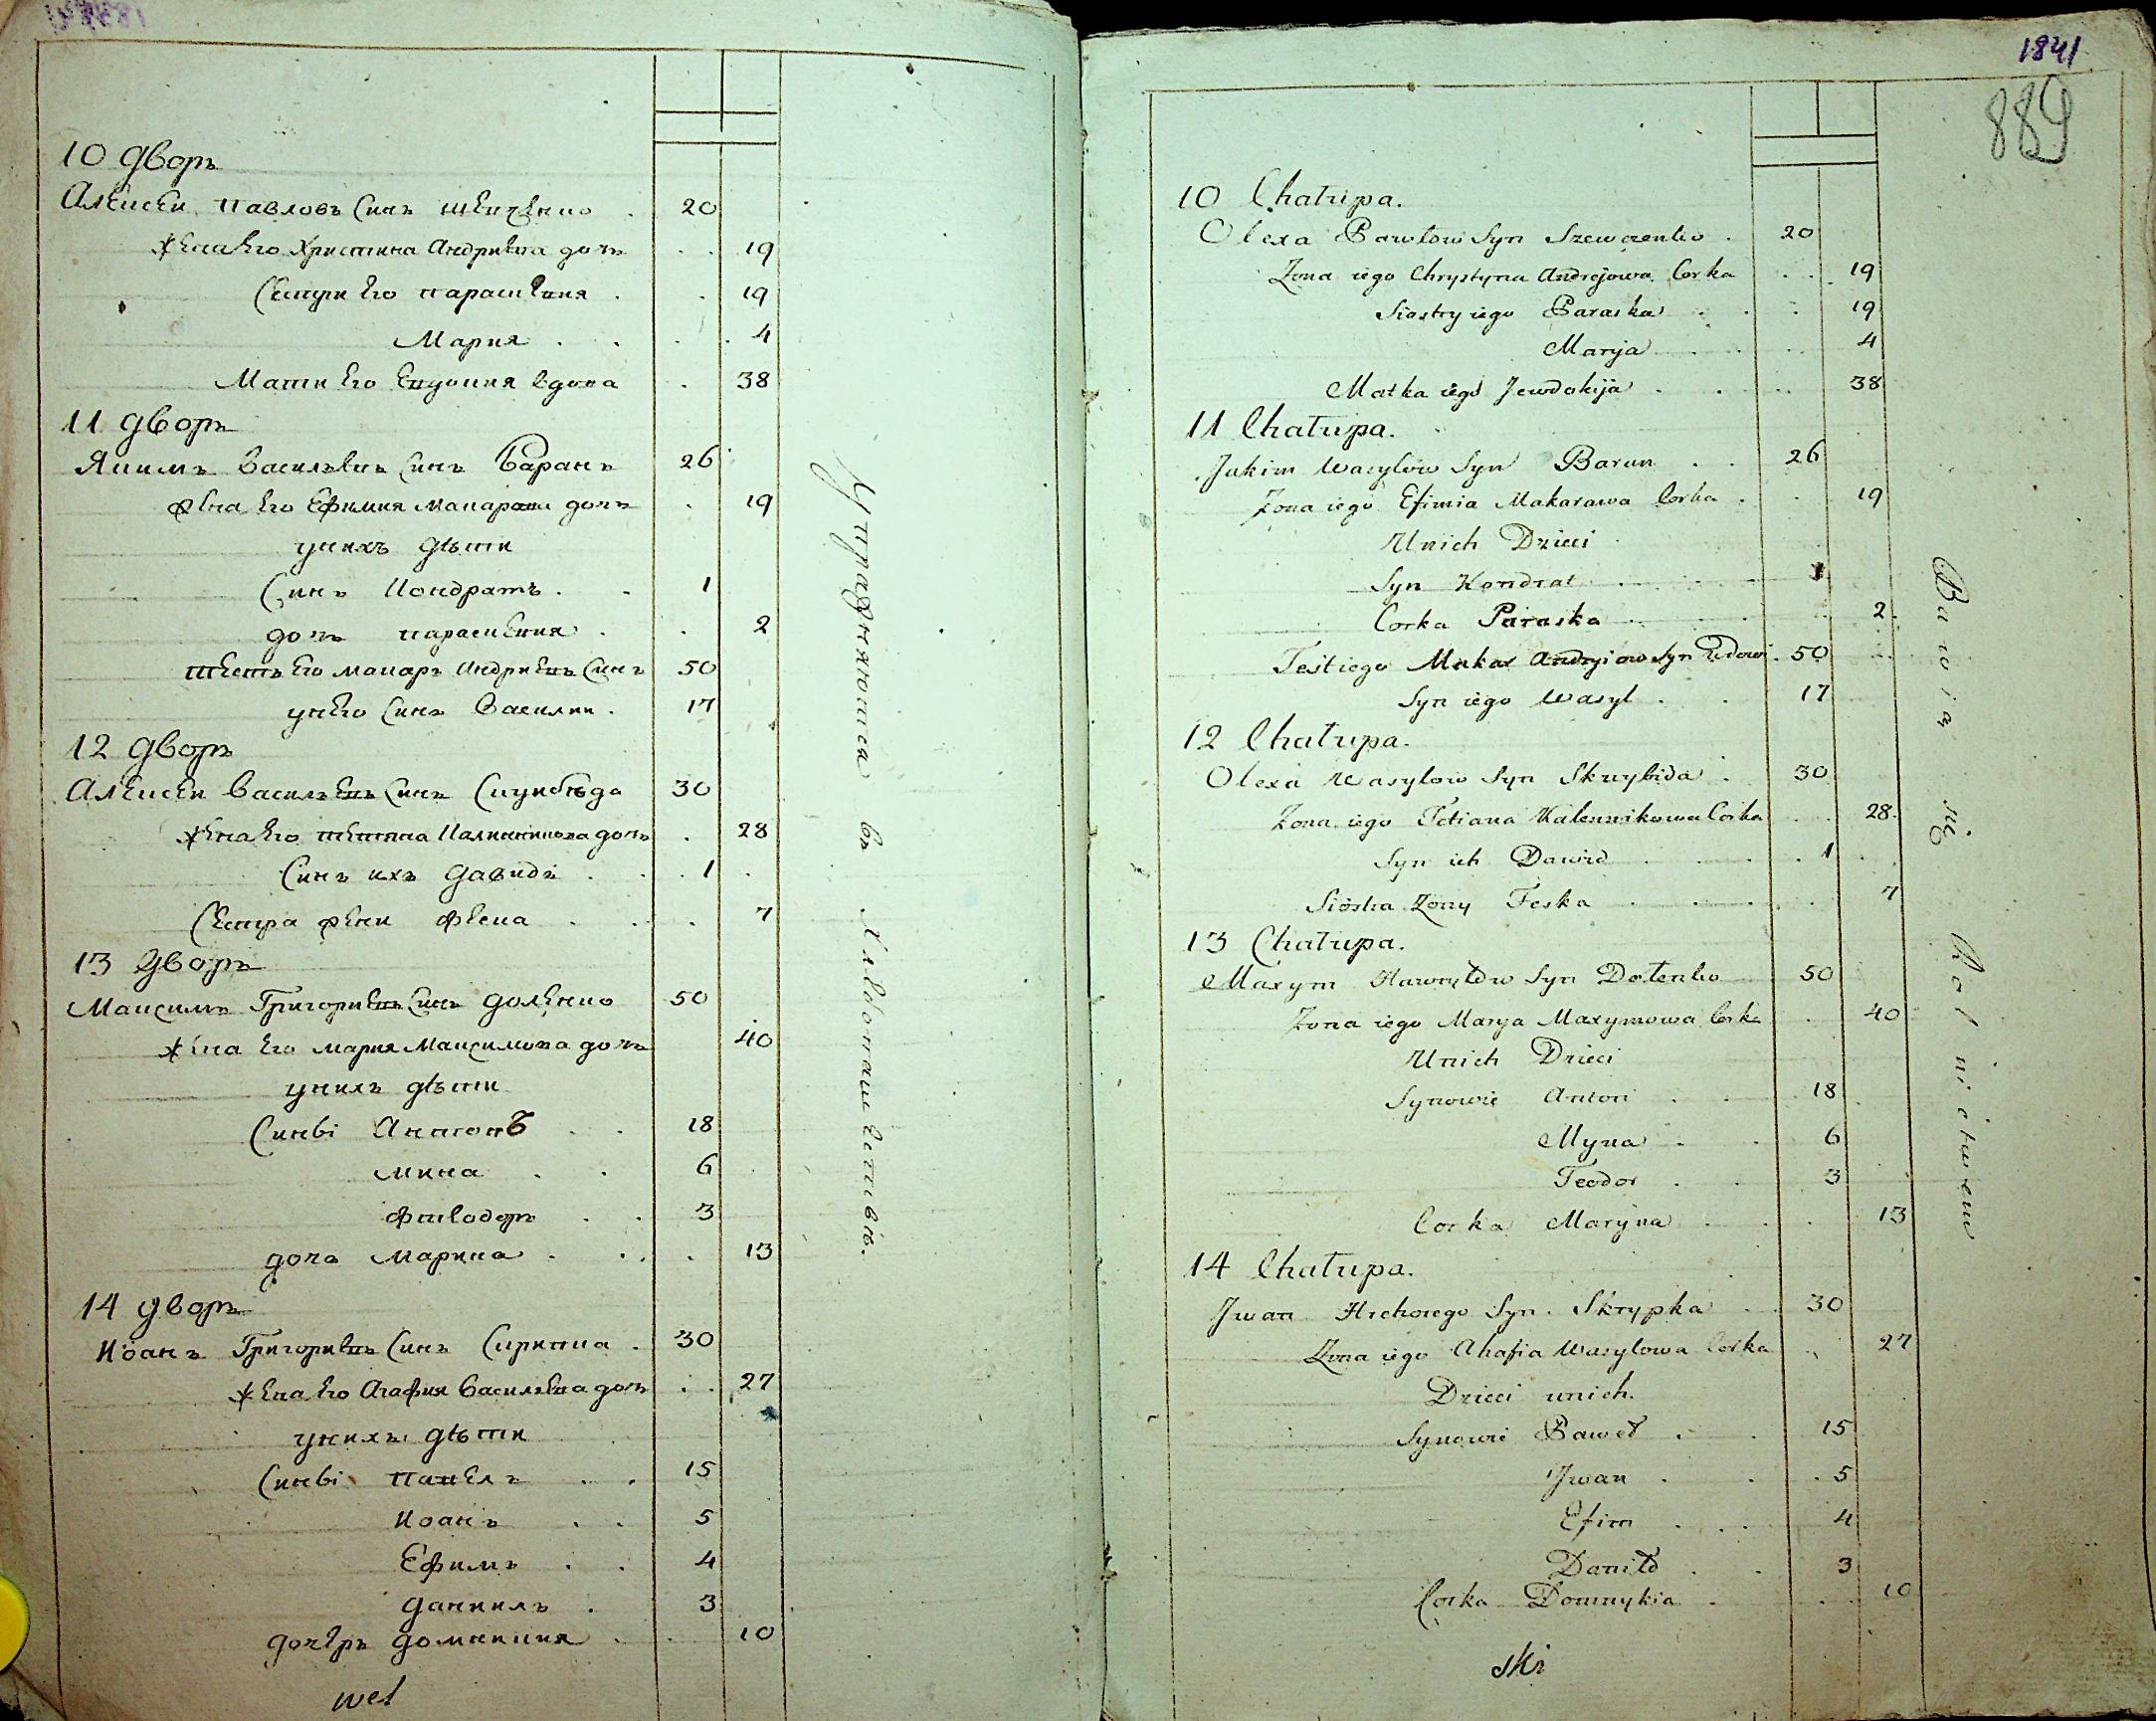 10 дворъ
Алексеи Павловъ синъ Шевченко . 20
жена его Христина Андриева дочь . . 19
Сестри его Параскевия . . 19
Мария . . . . 4
Мати его Евдокия вдова . 38
11 дворъ
Якимъ Василевъ синъ Баранъ 26
жена его Ефимия Макарова дочь . 19
унихъ дѣти
Синъ Кондратъ . . 1
дочь Параскевия . . 2
тесть его Макаръ Андриевъ синъ 50
унего синъ Василии . 17
12 дворъ
Алексеи Василевъ синъ Скуибѣда 30
жена его Тетяна Калиникова дочь . 28
Синъ ихъ Давидъ . . 1 .
Сестра жени Феска . . . 7
13 дворъ
Максимъ Григориевъ синъ Доленко 50
жена его Мария Максимова дочь 40
унихъ дѣти
Синві Антонъ . . 18
Мина . . 6
Фтеодоръ . . 3
дочь Марина . . . . 13
14 дворъ
Иоанъ Григориевъ синъ Скрипка . 30
жена его Агафия Василева дочь . . 27
унихъ дѣти
Синві Павелъ . . 15
Иоанъ . . 5
Ефимъ . . 4
Даниилъ . 3
дочеръ Домникия . . 10
wet
Упражняются въ Хлѣбопашествѣ.
1841
889
10 Chałupa.
Olexa Pawłow Syn Szewczenko . 20
Zona iego Chrystyna Andrejowa Corka . . 19
Siostry iego Paraska . . . 19
Marya . . . 4
Matka iego Jewdokija . . . 38
11 Chałupa.
Jakim Wasylow Syn Baran . . 26
Zona iego Efimia Makarawa Corka . . 19
Unich Dzieci
Syn Kondrat . . . 1
Corka Paraska . . . 2.
Test iego Makar Andryiow Syn Wdowi . 50
Syn iego Wasyl . . 17
12 Chałupa.
Olexa Wasylow Syn Skuybida . 30
Zona iego Tetiana Kalennikowa Corka . . 28.
Syn ich Dawid . . . 1
Siostra Zony Feska . . . 7
13 Chałupa.
Maxym Hawryłow Syn Dołenko 50
Zona iego Marya Maxymowa Corka . 40
Unich Dzieci
Synowie Anton . . 18
Myna . . 6
Teodor . . 3
Corka Maryna . . . 13
14 Chałupa.
Jwan Hrehorego Syn. Skrypka . . 30
Zona iego Ahafia Wasylowa Corka . 27
Dzieci unich.
Synowie Paweł . . 15
Jwan . . . 5
Efim . . . 4
Daniło . . 3
Corka Domnykia . . . 10
ski
Bawią się Rolnictwem